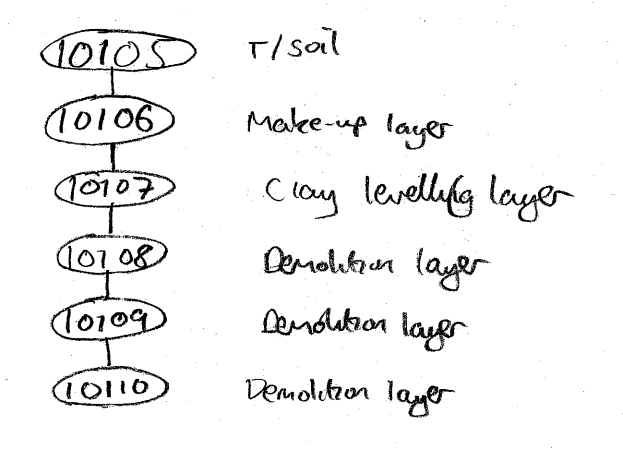 10105 T/soil
10106 Make-up layer
10107 Clay levelling layer
10108 Demolition layer
10109 Demolition layer
10110 Demolition layer